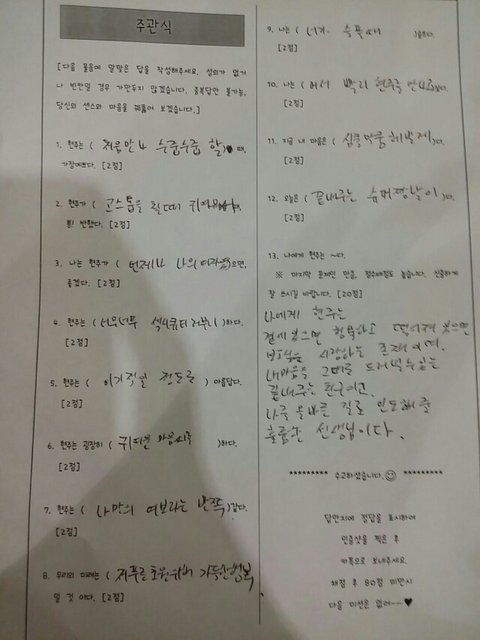 주관식
[다음 물음에 알맞은 답을 작성해주세요. 성의가 없거
나 빈칸일 경우 가만두지 않겠습니다. 중복답안 불가능,
당신의 센스와 마음을 꿰뚫어 보겠습니다.]
1. 현주는 ( 처음만나 수줍수줍 할 ) 때,
가장예쁘다. [2점]
2. 현주가 ( 고스톱을 칠때 귀여 )
뿅! 반했다. [2점]
3. 나는 현주가 ( 언제나 나의 여자 )으면,
좋겠다. [2점]
4. 현주는 ( 너무너무 섹시큐티러블리 )하다.
[2점]
5. 현주는 ( 이기적일 정도로 ) 아름답다.
[2점]
6. 현주는 굉장히 ( 귀여운 마음씨를 )하다.
[2점]
7. 현주는 ( 나만의 여보라는 반쪽 )같다.
[2점]
8. 우리의 미래는 ( 저푸른초원위에 가득찬행복 )
일 것 이다. [2점]
9. 나는 ( 너가 슬플때 )슬프다.
[2점]
10. 나는 ( 어서 빨리 현주를 만나고 )싶다.
[2점]
11. 지금 내 마음은 ( 심쿵약쿵해발제 )다.
[2점]
12. 오늘은 ( 끝내주는 슈퍼짱날이 )다.
[2점]
13. 나에게 현주는 ~다.
※ 마지막 문제인 만큼, 점수배점도 높습니다. 신중하게
잘 쓰시길 바랍니다. [20점]
나에게 현주는
곁에있으면 행복하고 떨어져있으면
보고싶음을 시작하는 존재이며,
내마음을 그대로 드러낼수있는
끝내주는 친구이고,
나를 올바른 길로 인도해줄
훌륭한 선생님이다.
********* 수고하셨습니다.☺ *********
답안지에 정답을 표시하여
인증샷을 찍은 후
카톡으로 보내주세요.
채점 후 80점 미만시
다음 미션은 없어~~♥